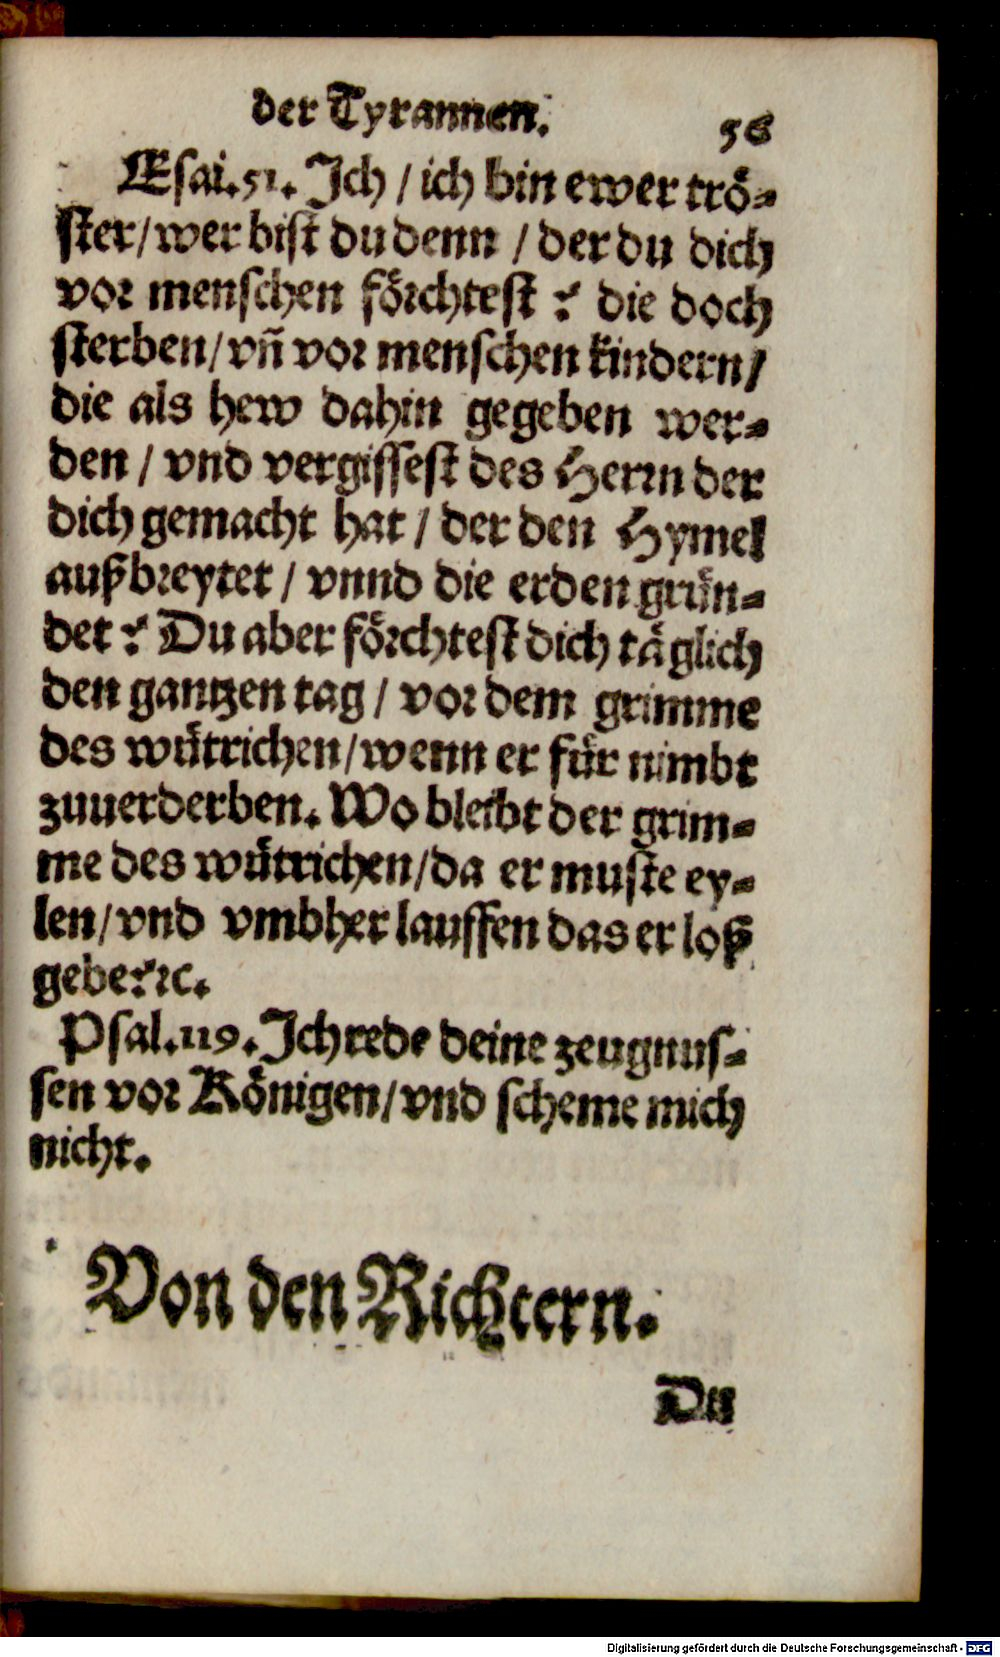 der Tyrannen. 56
Esai.51. Ich / ich bin ewer trö-
ster/wer bist du denn / der du dich
vor menschen förchtest? die doch
sterben/vñ vor menschen kindern/
die als hew dahin gegeben wer-
den / vnd vergissest des Herrn der
dich gemacht hat / der den Hymel
außbreytet / vnnd die erden grün-
det? Du aber förchtest dich täglich
den gantzen tag / vor dem grimme
des wütrichen/wenn er für nimbt
zuuerderben. Wo bleibt der grim-
me des wütrichen/da er muste ey-
len/vnd vmbher lauffen das er loß
gebe?ꝛc.
Psal.119. Ich rede deine zeugnus-
sen vor Königen/vnd scheme mich
nicht.
Von den Richtern.
Du
Digitalisierung gefördert durch die Deutsche Forschungsgemeinschaft - DFG